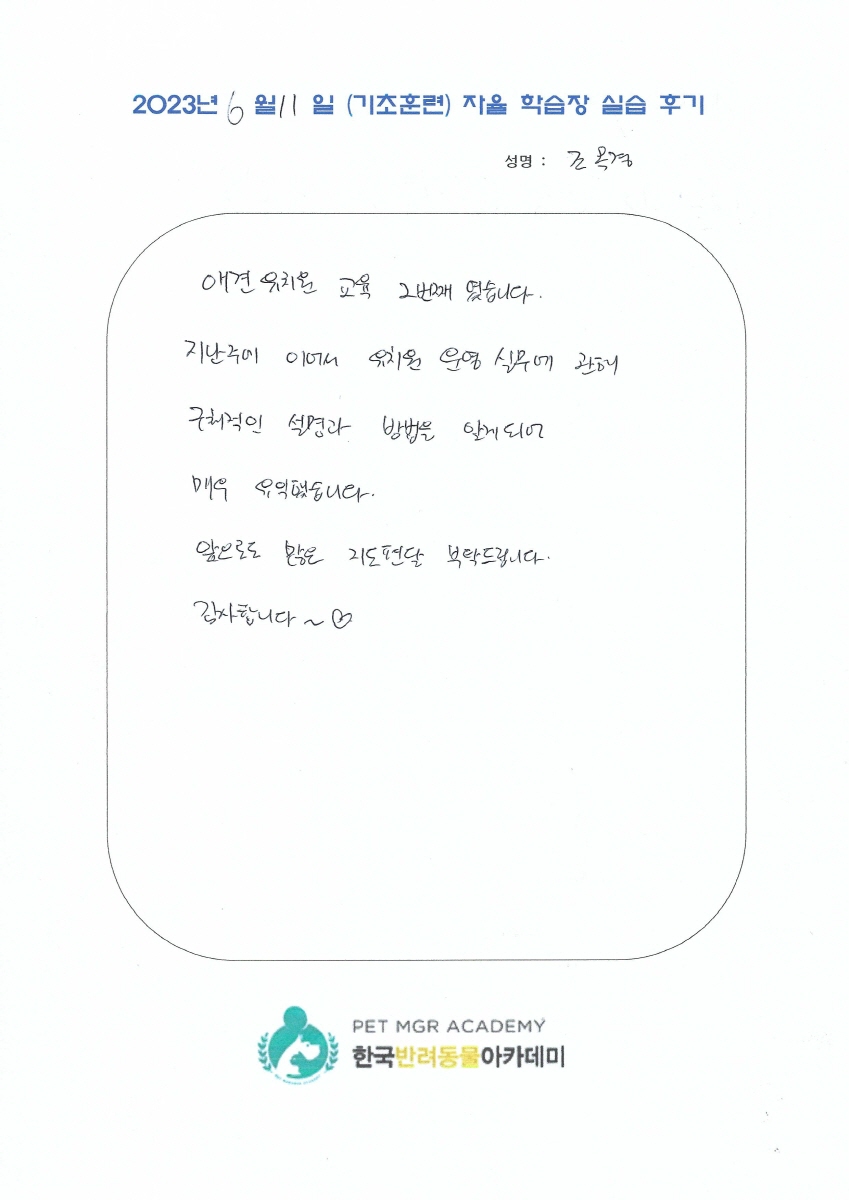 2023년 6월 11일 (기초훈련) 자율 학습장 실습 후기
성명 : 조옥경
애견 유치원 교육 2번째 였습니다.
지난주에 이어서 유치원 운영 실무에 관해
구체적인 설명과 방법을 알게되어
매우 유익했습니다.
앞으로도 많은 지도편달 부탁드립니다.
감사합니다 ~ ♡
PET MGR ACADEMY
한국반려동물아카데미